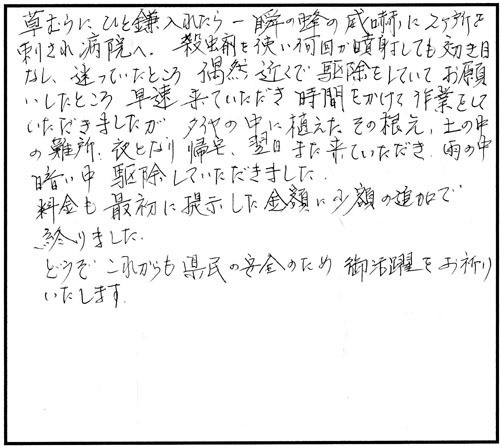 草むらに ひと鎌入れたら 一瞬の蜂の威嚇に 2ヶ所を
刺され 病院へ. 殺虫剤を使い何回か噴射しても効き目
なし、迷っていたところ 偶然 近くで駆除をしていて お願
いしたところ 早速 来ていただき 時間をかけて 作業をして
いただきましたが タイヤの中に植えた その根元、土の中
の難所. 夜となり帰宅、翌日 また 来ていただき. 雨の中
暗い中 駆除していただきました.
料金も 最初に提示した金額に少額の追加で
終りました.
どうぞ これからも 県民の安全のため 御活躍をお祈り
いたします.